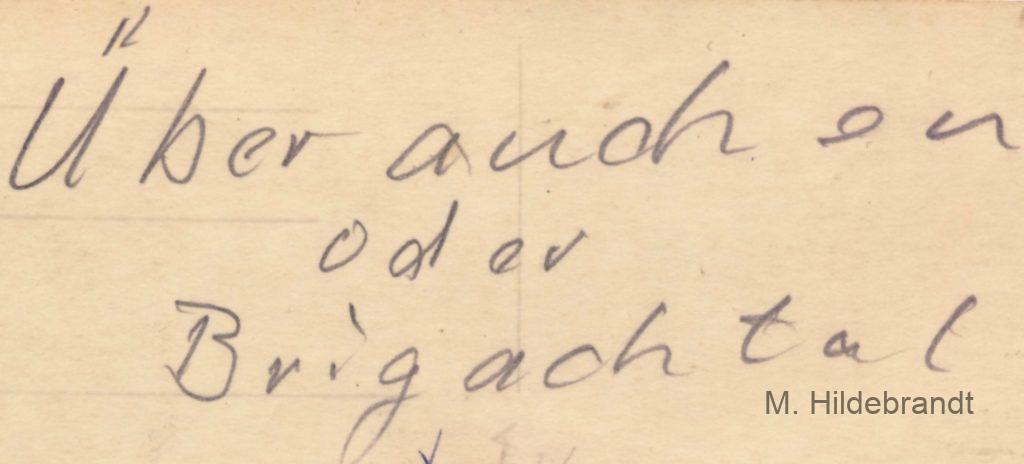 Über auch en
oder
Brigach tal
M. Hildebrandt